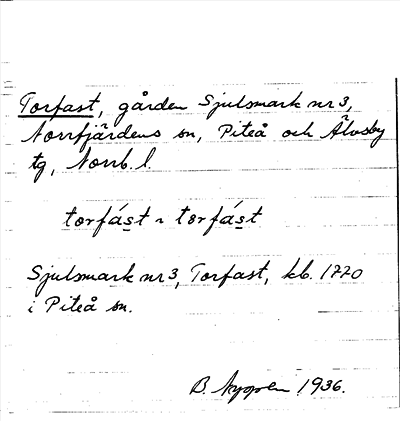 Torfast, gården Sjulsmark nr 3,
Norrfjärdens sn, Piteå och Älvsby
tg, Norrb. l.
torfást ~ torfást
Sjulsmark nr 3, Torfast, kb. 1720
i Piteå sn.
B. 1936.